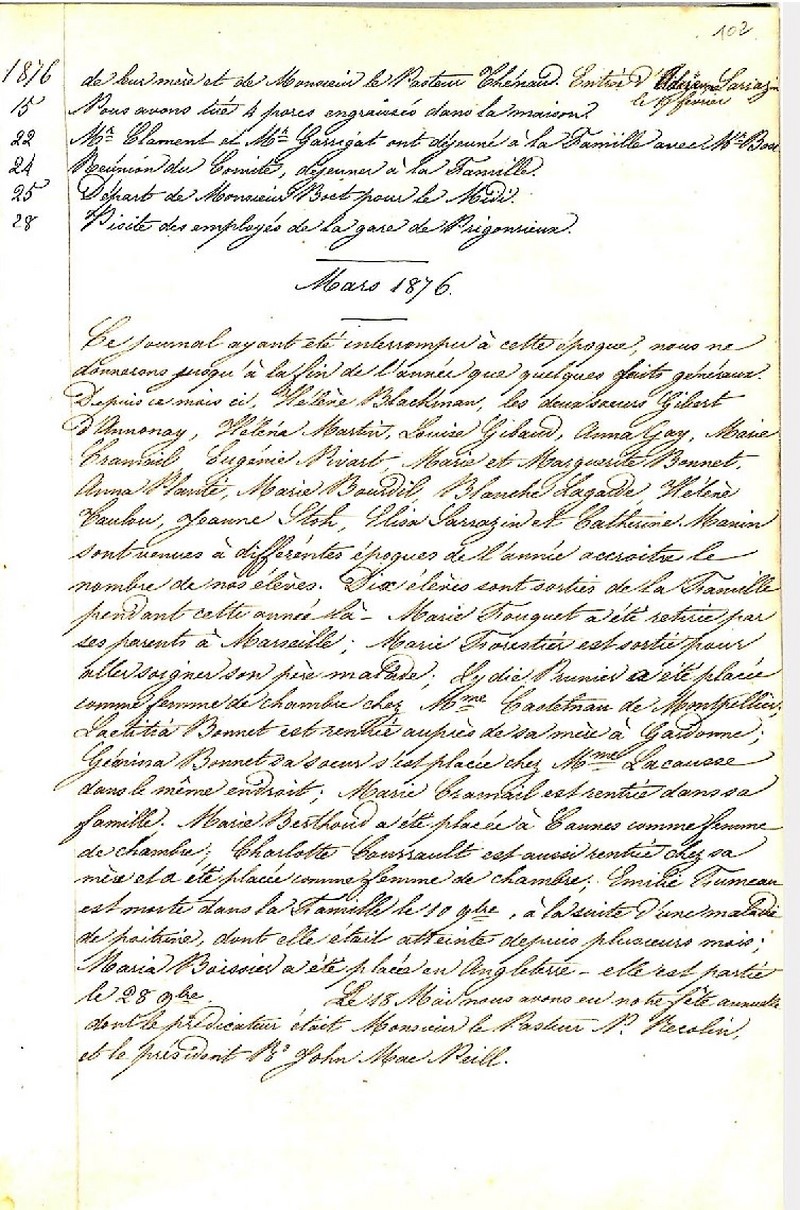 102
1876 de leur mère et de Monsieur le Pasteur Thénaud. Entrée d'Adrienne Sarrazin
le 17 février
15 Nous avons tué 4 porcs engraissés dans la maison.
22 Mr Clament et Mr Garrigat ont déjeuné à la Famille avec Mr Bost
24 Réunion du Comité, déjeuner à la Famille.
25 Départ de Monsieur Bost pour le Midi.
28 Visite des employés de la gare de Prigonrieux.
Mars 1876.
Ce journal ayant été interrompu à cette époque, nous ne
donnerons jusqu'à la fin de l'année que quelques faits généraux.
Depuis ce mois ci, Hélène Blackman, les deux sœurs Gibert
d'Annonay, Héléna Martin, Louise Gibaud, Anna Gay, Marie
Cramail Eugénie Rivart, Marie et Marguerite Bonnet,
Anna Planté, Marie Bourdil, Blanche Lagarde, Hélène
Coulou, Jeanne Stoh, Elisa Sarrazin et Catherine Manin
sont venues à différentes époques de l'année accroitre le
nombre de nos élèves. Dix élèves sont sorties de la Famille
pendant cette année là - Marie Fouquet a été retirée par
ses parents à Marseille; Marie Forestier est sortie pour
aller soigner son père malade; Lydie Prunier a été placée
comme femme de chambre chez Mme Castelnau de Montpellier;
Laetitia Bonnet est rentrée auprès de sa mère à Gardonne;
Gévrina Bonnet sa sœur s'est placée chez Mme Lacausse
dans le même endroit; Marie Cramail est rentrée dans sa
famille. Marie Berthoud a été placée à Cannes comme femme
de chambre; Charlotte Courrault est aussi rentrée chez sa
mère et a été placée comme femme de chambre; Emilie Trumeau
est morte dans la Famille le 10 9bre, à la suite d'une maladie
de poitrine, dont elle était atteinte depuis plusieurs mois;
Maria Boissier a été placée en Angleterre - elle est partie
le 28 9bre. Le 18 Mai nous avons eu notre fête annuelle
dont le prédicateur était Monsieur le Pasteur N. Recolin,
et le président Rd John Mac Neill.